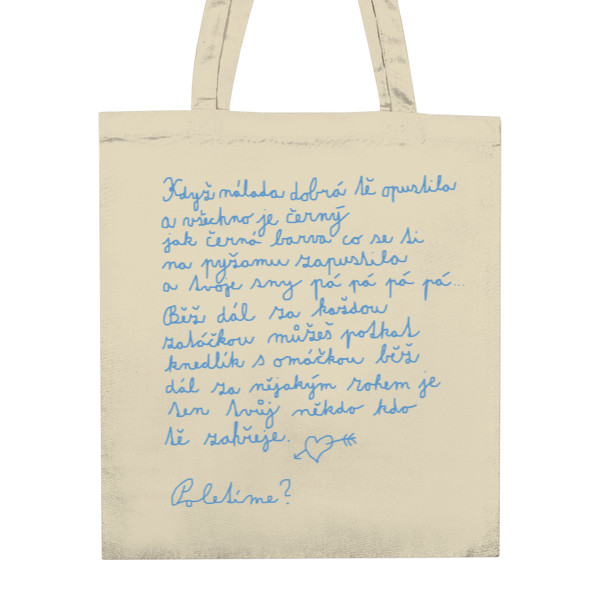 Když nálada dobrá tě opustila
a všechno je černý
jak černá barva co se ti
na pyžamu zapustila
a tvoje sny pá pá pá pá...
Běž dál za každou
zatáčkou můžeš potkat
knedlík s omáčkou běž
dál za nějakým rohem je
ten tvůj někdo kdo
tě zahřeje.
Poletíme?